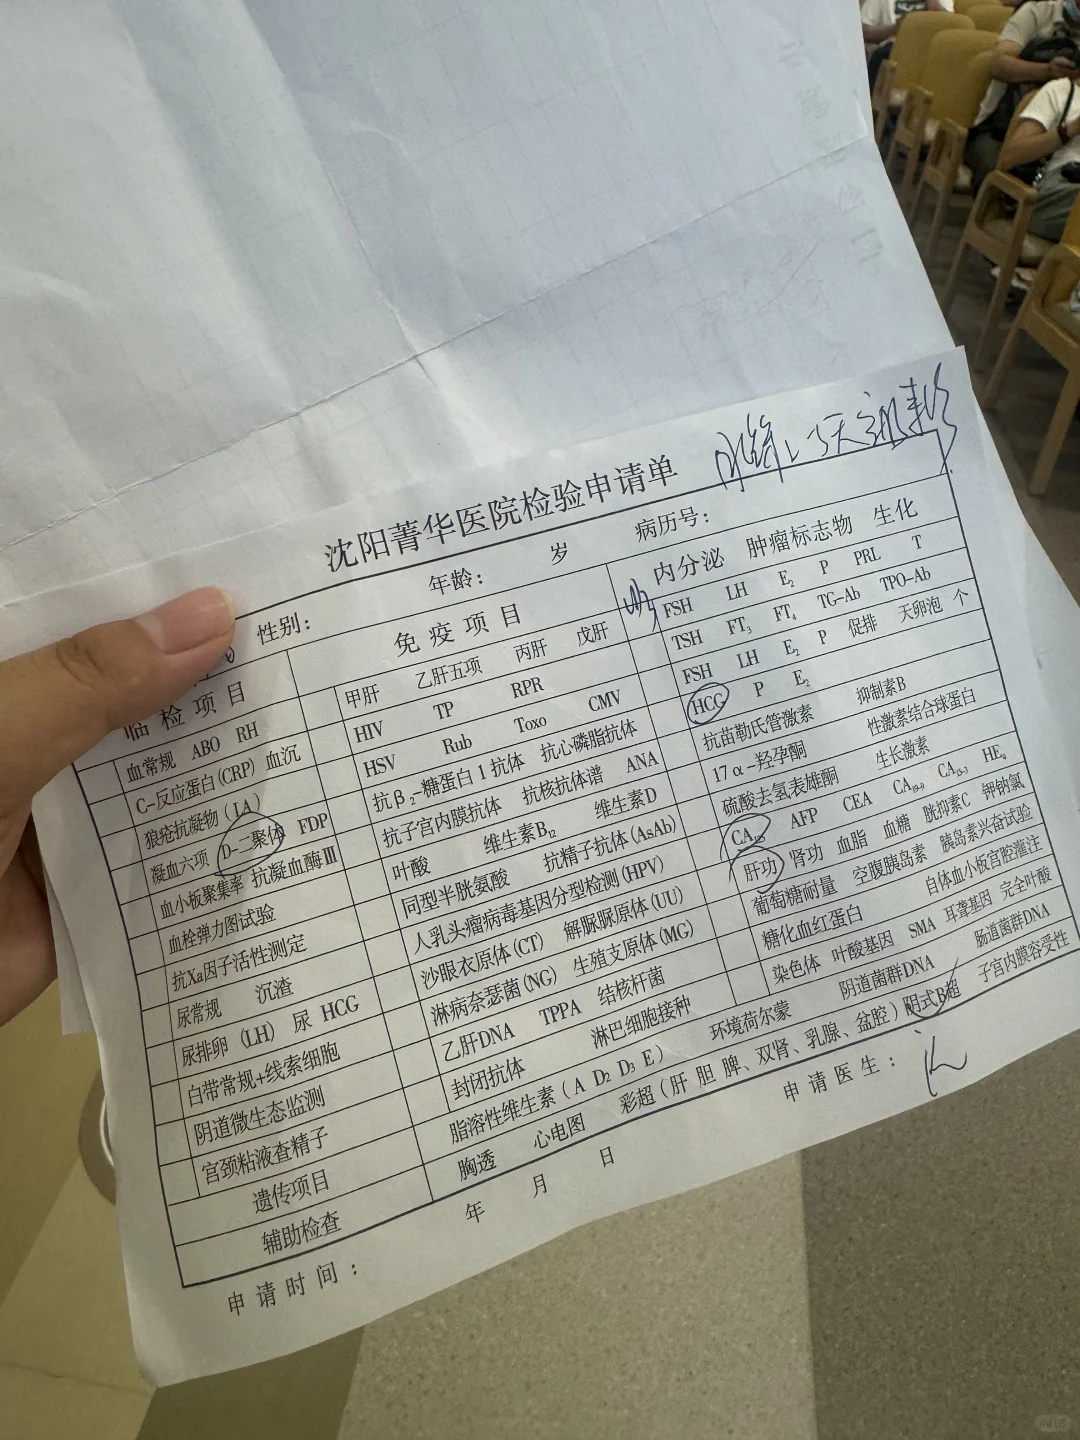 沈阳菁华医院检验申请单
性别： 年龄： 岁 病历号：
临检项目
血常规 ABO RH
C-反应蛋白(CRP) 血沉
狼疮抗凝物(LA)
凝血六项 D-二聚体 FDP
血小板聚集率 抗凝血酶Ⅲ
血栓弹力图试验
抗Xa因子活性测定
尿常规 沉渣
尿排卵(LH) 尿 HCG
白带常规+线索细胞
阴道微生态监测
宫颈粘液查精子
免疫项目
甲肝 乙肝五项 丙肝 戊肝
HIV TP RPR
HSV Rub Toxo CMV
抗β₂-糖蛋白1抗体 抗心磷脂抗体
抗子宫内膜抗体 抗核抗体谱 ANA
叶酸 维生素B₁₂ 维生素D
同型半胱氨酸 抗精子抗体(AsAb)
人乳头瘤病毒基因分型检测(HPV)
沙眼衣原体(CT) 解脲脲原体(UU)
淋病奈瑟菌(NG) 生殖支原体(MG)
乙肝DNA TPPA 结核杆菌
封闭抗体 淋巴细胞接种
内分泌 肿瘤标志物 生化
FSH LH E₂ P PRL T
TSH FT₃ FT₄ TG-Ab TPO-Ab
FSH LH E₂ P 促排 天卵泡 个
HCG P E₂
抗苗勒氏管激素 抑制素B
17α-羟孕酮 性激素结合球蛋白
硫酸去氢表雄酮 生长激素
CA₁₂₅ AFP CEA CA₁₉₋₉ CA₁₅₋₃ HE₄
肝功 肾功 血脂 血糖 胱抑素C 钾钠氯
葡萄糖耐量 空腹胰岛素 胰岛素兴奋试验
糖化血红蛋白 自体血小板宫腔灌注
遗传项目
染色体 叶酸基因 SMA 耳聋基因 完全叶酸
脂溶性维生素(A D₂ D₃ E) 环境荷尔蒙 阴道菌群DNA 肠道菌群DNA
辅助检查
胸透 心电图 彩超(肝 胆 脾、双肾、乳腺、盆腔) 阴式B超 子宫内膜容受性
申请时间： 年 月 日 申请医生：